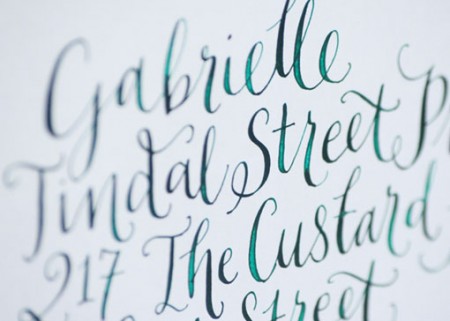 Gabrielle
Tindal Street
217 The Custard
Street